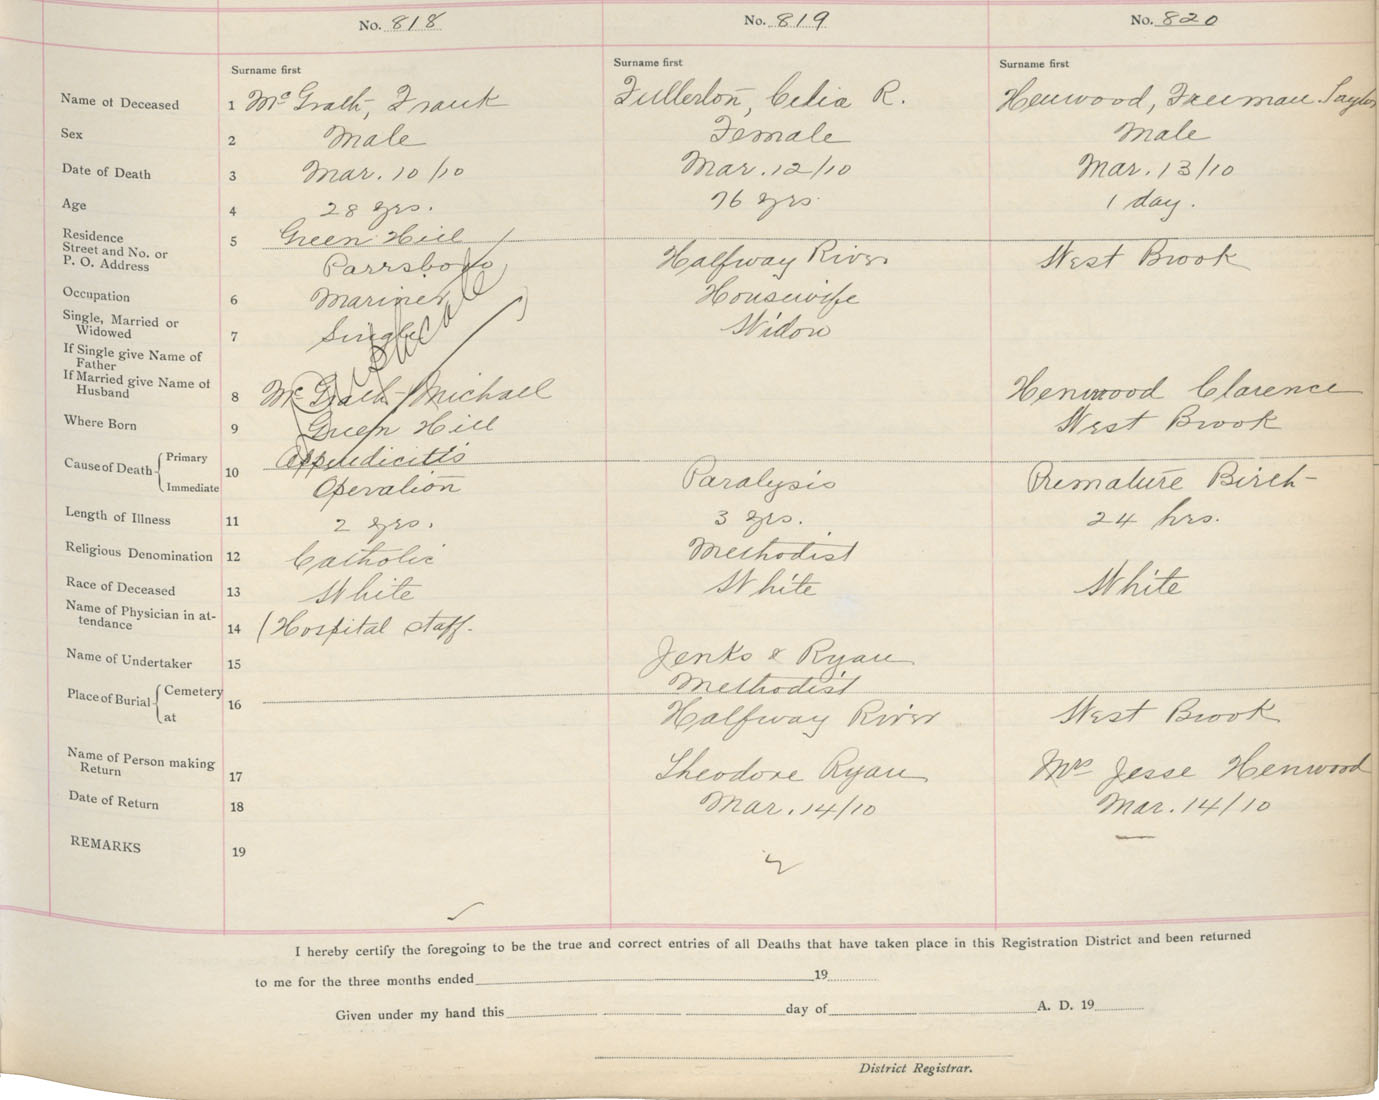 No. 818 No. 819 No. 820
Surname first Surname first Surname first
Name of Deceased 1 McGrath, Frank Fullerton, Celia R. Henwood, Freeman Saylor
Sex 2 Male Female Male
Date of Death 3 Mar. 10/10 Mar. 12/10 Mar. 13/10
Age 4 28 yrs. 76 yrs. 1 day.
Residence 5 Green Hill
Street and No. or
P. O. Address Parrsboro Halfway River West Brook
Occupation 6 Mariner Housewife
Single, Married or
Widowed 7 Single Widow
Duplicate
If Single give Name of
Father
If Married give Name of
Husband 8 McGrath Michael Henwood Clarence
Where Born 9 Green Hill West Brook
Cause of Death Primary 10 Appendicitis
Immediate Operation Paralysis Premature Birth
Length of Illness 11 2 yrs. 3 yrs. 24 hrs.
Religious Denomination 12 Catholic Methodist
Race of Deceased 13 White White White
Name of Physician in at-
tendance 14 (Hospital staff.
Name of Undertaker 15 Jenks & Ryan
Place of Burial Cemetery 16 Methodist
at Halfway River West Brook
Name of Person making
Return 17 Theodore Ryan Mrs Jesse Henwood
Date of Return 18 Mar. 14/10 Mar. 14/10
REMARKS 19
I hereby certify the foregoing to be the true and correct entries of all Deaths that have taken place in this Registration District and been returned
to me for the three months ended 19
Given under my hand this day of A. D. 19
District Registrar.